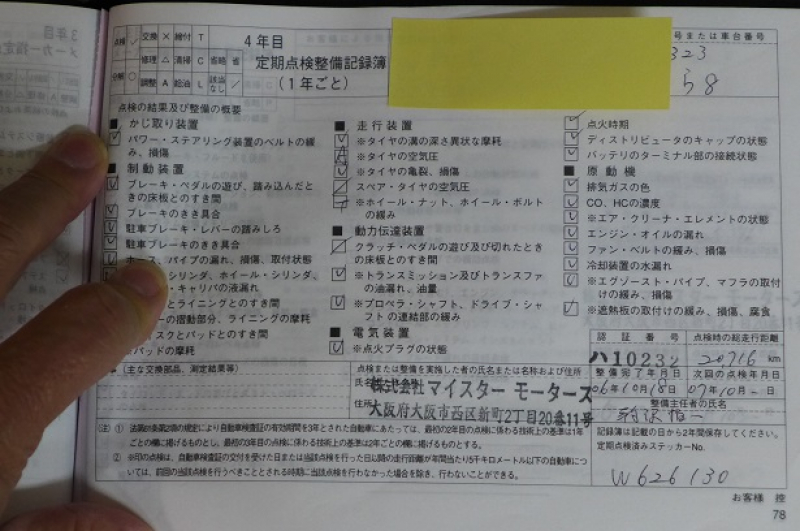 点検 ✓ 交換 × 締付 T
修理 △ 清掃 C 省略 省
分解 ○ 調整 A 給油 L 該当なし /
4年目
定期点検整備記録簿
(1年ごと)
号または車台番号
323
58
点検の結果及び整備の概要
■ かじ取り装置
パワー・ステアリング装置のベルトの緩
み、損傷
■ 制動装置
ブレーキ・ペダルの遊び、踏み込んだと
きの床板とのすき間
ブレーキのきき具合
駐車ブレーキ・レバーの踏みしろ
駐車ブレーキのきき具合
ホース、パイプの漏れ、損傷、取付状態
シリンダ、ホイール・シリンダ、
・キャリパの液漏れ
とライニングとのすき間
ーの摺動部分、ライニングの摩耗
ィスクとパッドとのすき間
※パッドの摩耗
■ 走行装置
※タイヤの溝の深さ異状な摩耗
※タイヤの空気圧
※タイヤの亀裂、損傷
スペア・タイヤの空気圧
※ホイール・ナット、ホイール・ボルト
の緩み
■ 動力伝達装置
クラッチ・ペダルの遊び及び切れたとき
の床板とのすき間
※トランスミッション及びトランスファ
の油漏れ、油量
※プロペラ・シャフト、ドライブ・シャ
フトの連結部の緩み
■ 電気装置
※点火プラグの状態
点火時期
ディストリビュータのキャップの状態
バッテリのターミナル部の接続状態
■ 原動機
排気ガスの色
CO、HCの濃度
※エア・クリーナ・エレメントの状態
エンジン・オイルの漏れ
ファン・ベルトの緩み、損傷
冷却装置の水漏れ
※エグゾースト・パイプ、マフラの取付
けの緩み、損傷
※遮熱板の取付けの緩み、損傷、腐食
(主な交換部品、測定結果等)
点検または整備を実施した者の氏名または名称および住所
株式会社マイスターモーターズ
大阪府大阪市西区新町2丁目20番11号
認証番号 点検時の総走行距離
ハ10232 20716 km
整備完了年月日 次回の点検年月日
06年10月18日 07年10月-日
整備主任者の氏名
記録簿は記載の日から2年間保存してください。
定期点検済みステッカーNo.
W626130
(注) ① 法第61条第2項の規定により自動車検査証の有効期間を3年とされた自動車にあたっては、最初の2年目の点検に係わる技術上の基準は1年
ごとの欄に掲げるものとし、最初の3年目の点検に係わる技術上の基準は2年ごとの欄に掲げるものとする。
② ※印の点検は、自動車検査証の交付を受けた日または当該点検を行った日以前の走行距離が年間当たり5千キロメートル以下の自動車につ
いては、前回の当該点検を行うべきこととされる時期に当該点検を行わなかった場合を除き、行わないことができる。
お客様 控
78
3年目